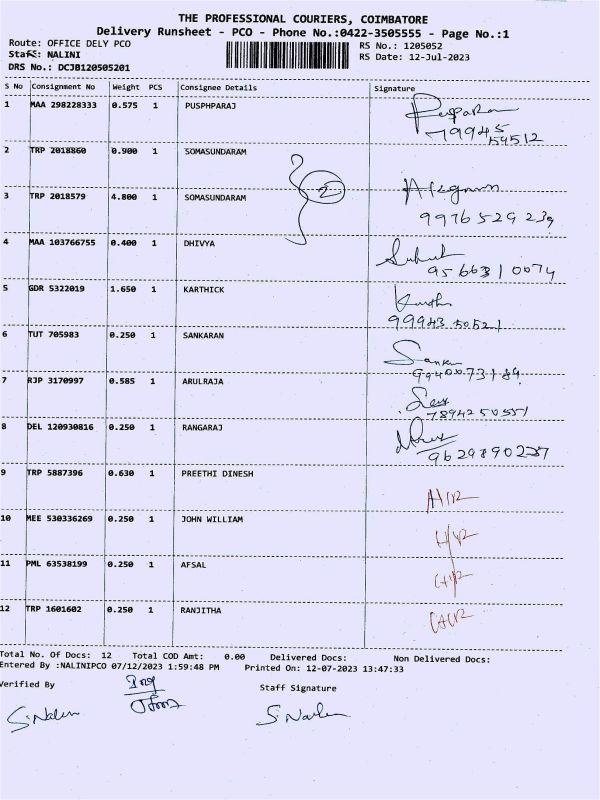 THE PROFESSIONAL COURIERS, COIMBATORE
Delivery Runsheet - PCO - Phone No.:0422-3505555 - Page No.:1
Route: OFFICE DELY PCO
RS No.: 1205052
Staff: NALINI
RS Date: 12-Jul-2023
DRS No.: DCJB120505201
S No Consignment No Weight PCS Consignee Details Signature
1 MAA 298228333 0.575 1 PUSPHPARAJ
79945 54512
2 TRP 2018860 0.900 1 SOMASUNDARAM
2
3 TRP 2018579 4.800 1 SOMASUNDARAM
9976529239
4 MAA 103766755 0.400 1 DHIVYA
9566310074
5 GDR 5322019 1.650 1 KARTHICK
99943 50521
6 TUT 705983 0.250 1 SANKARAN
9940073184
7 RJP 3170997 0.585 1 ARULRAJA
7894250551
8 DEL 120930816 0.250 1 RANGARAJ
9629890237
9 TRP 5887396 0.630 1 PREETHI DINESH
10 MEE 530336269 0.250 1 JOHN WILLIAM
11 PML 63538199 0.250 1 AFSAL
12 TRP 1601602 0.250 1 RANJITHA
Total No. Of Docs: 12 Total COD Amt: 0.00 Delivered Docs: Non Delivered Docs:
Entered By :NALINIPCO 07/12/2023 1:59:48 PM Printed On: 12-07-2023 13:47:33
Verified By
Staff Signature
S. Nalini S. Nalini